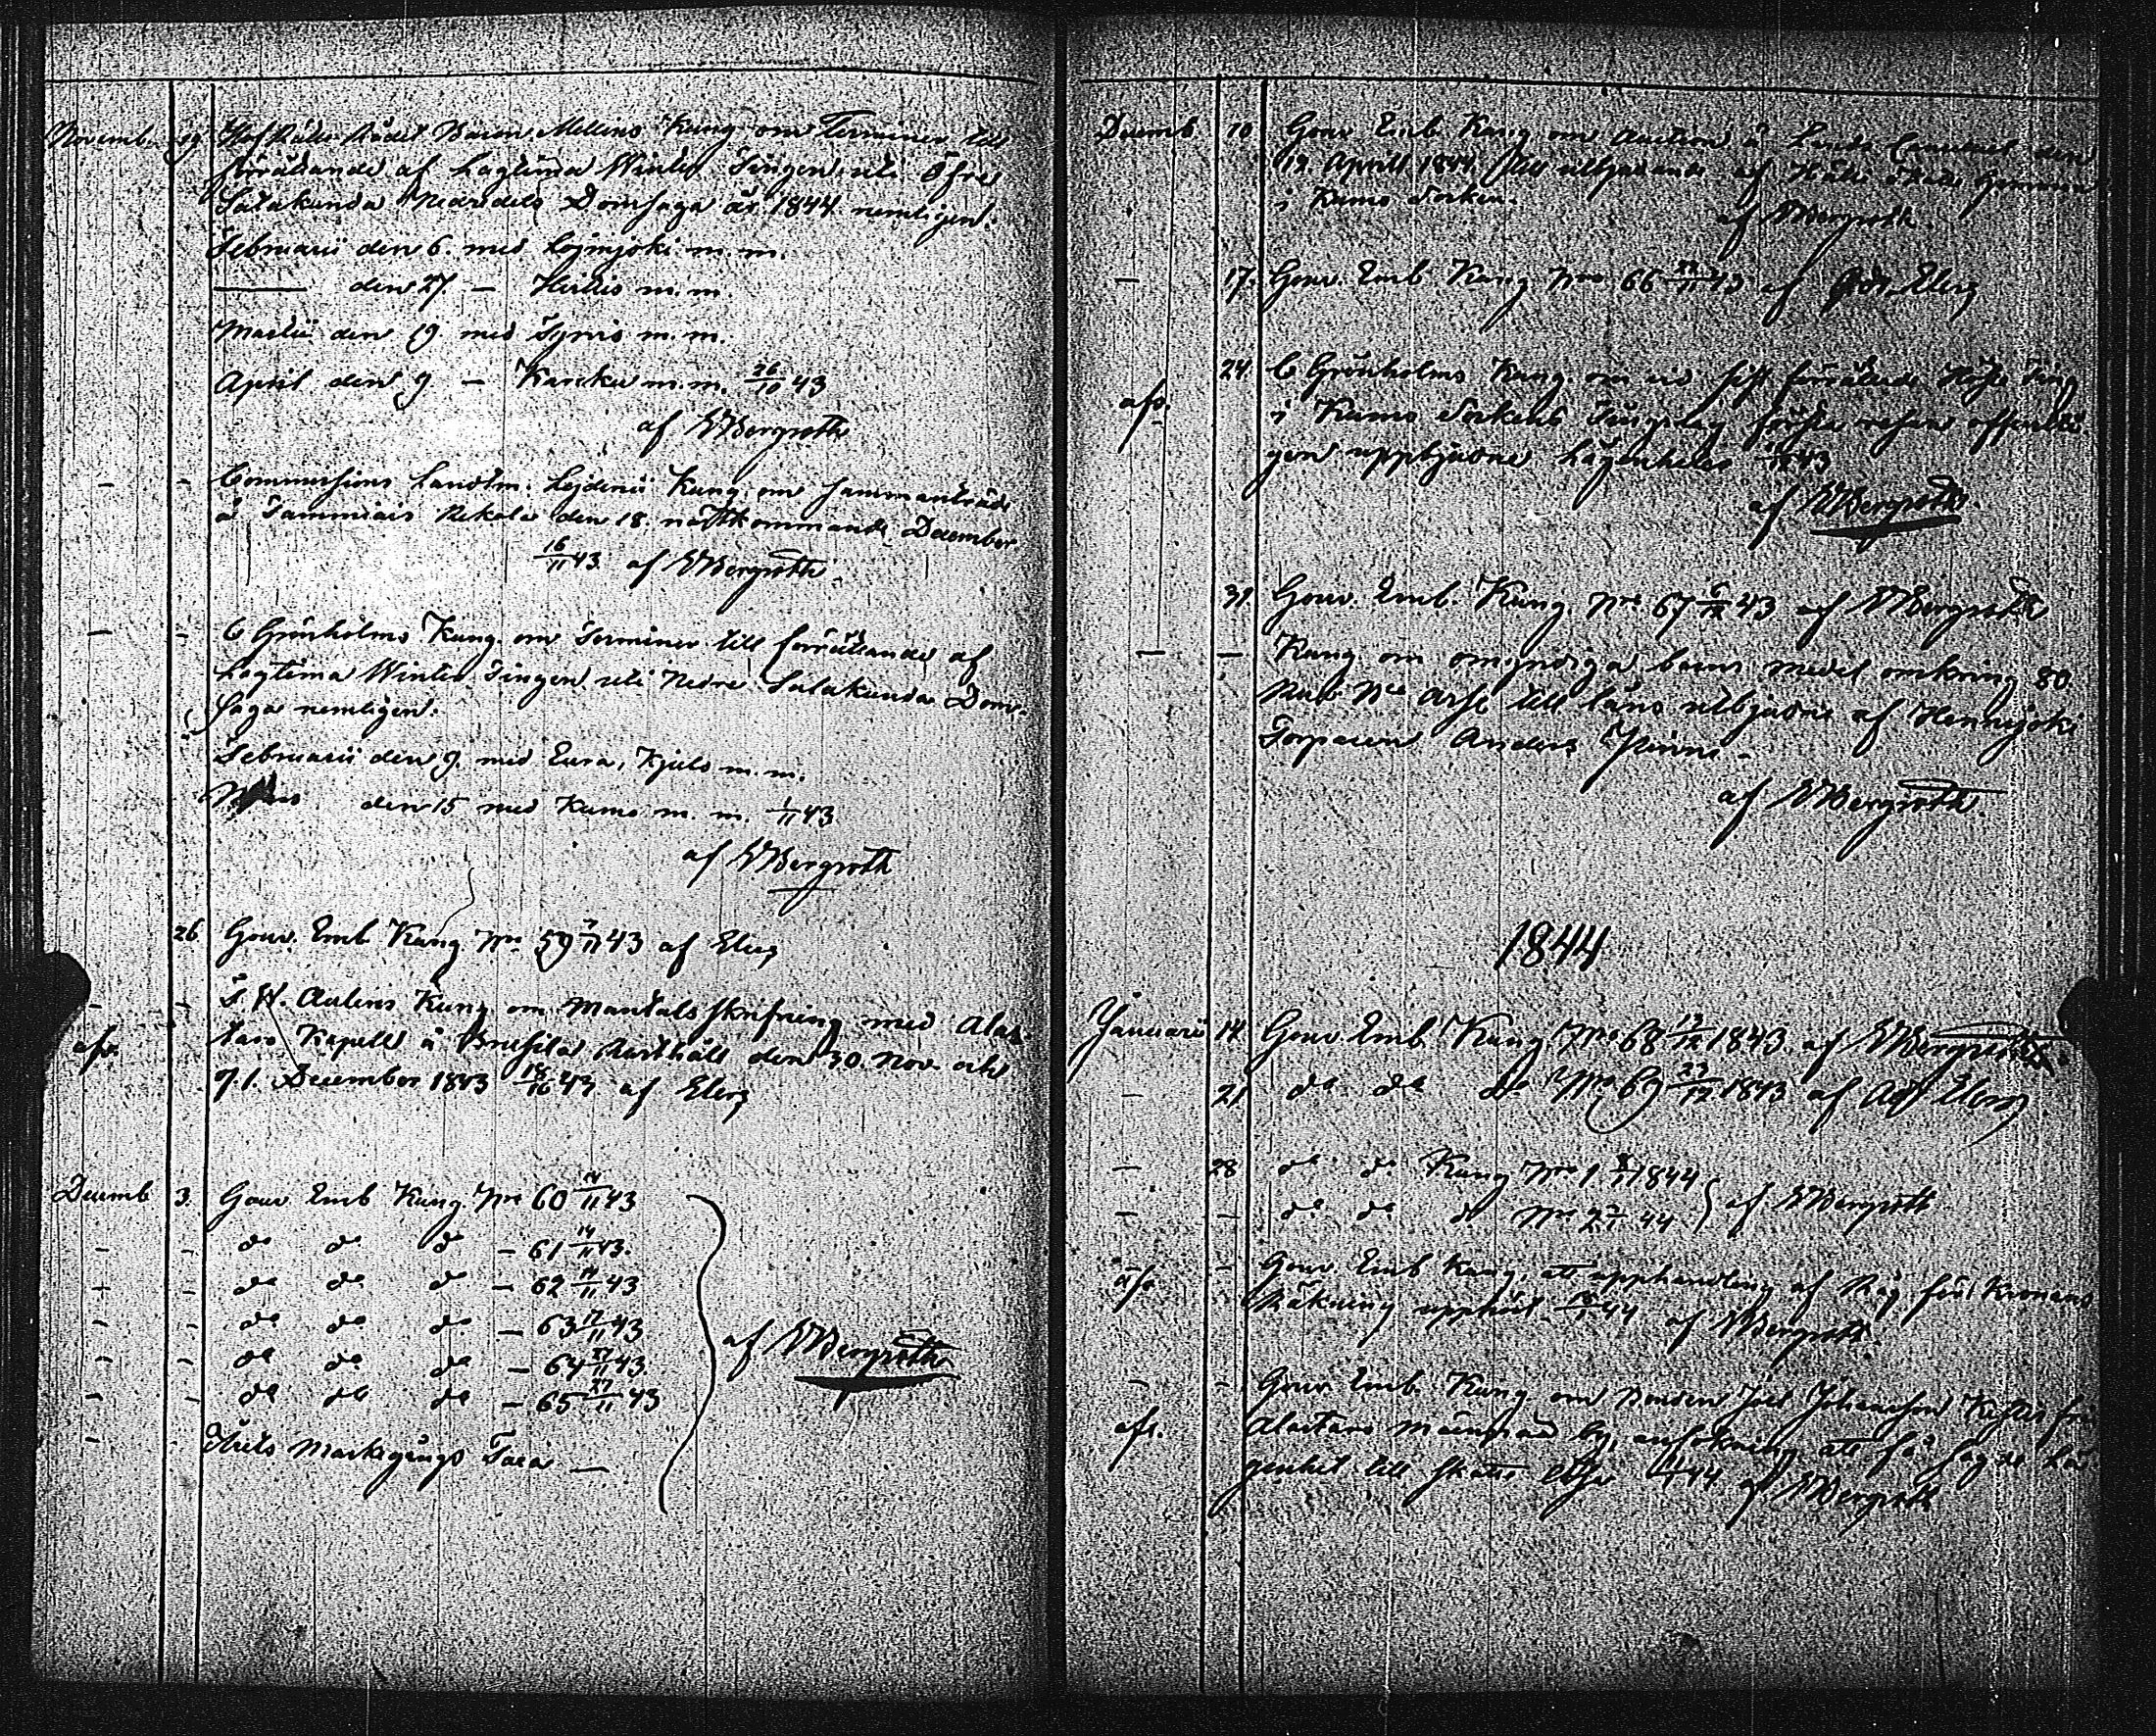 Novemb. 19. Hof Rätts Rådet Baron Mellins Kung. om Terminer till
förrättande af Lagtima Winter Tingen uti Öfre
Satakunda Nedredels Domsaga år 1844 nemligen:
Februarii den 6. med Loimjoki m. m.
— den 27. — Hvittis m. m.
Martii den 19 med Tyrvis m. m.
April den 9 — Karcku m. m. 26/10 43
af EWBergroth
- - Commissions Landtm. Lejdenii Kung. om sammanträde
å Tammiais Nekola den 18. nästkommande December
16/11 43. af EWBergroth
- - C Grönholms Kung. om Terminer till förrättande af
Lagtima Winter Tingen uti Nedre Satakunda Dom-
saga nemligen:
Februarii den 9. med Eura, Kjulo m. m.
den 15 med Kumo m. m. 1/11 43
af EWBergroth
26. Gouv. Emb. Kung. Nro 59 7/11 43 af Elers
- - Aulins Kung om Mantals skrifning med Alas-
afs. taro Kapell å Rusthåll den 30. Nov. och
d. 1. December 1843 af Elers
Decemb 3. Gouv Emb Kung. Nro 60 14/11 43
- - do do do — 61 14/11 43.
- - do do do — 62 14/11 43
- - do do do — 63 17/11 43
- - do do do — 64 43.
- - do do do — 65 27/11 43
af EWBergroth
- Årets Markegångs Taxa —
Decemb 10 Gouv Emb. Kung om Auction å Lands Cancelliet den
19. Aprill 1844 till utbjudande af
i Kumo Socken.
af EWBergroth.
— 17. Gouv. Emb Kung Nro 66 43 af Elers
24 C Grönholms Kung. om vid sist förrättade Höste Ting
afs. i Kumo Sockens Tingslag första resan offentli-
gen uppbjudne Lägenheter 43
af EWBergroth.
31. Gouv. Emb. Kung. Nro 67 6/12 43 af EWBergroth
— — Kung om omyndiga barns medel omkring 80.
Rub Slfr till låns utbjudne af Hennijoki
Torparen Anders
af EWBergroth.
1844
Januarii 14 Gouv Emb. Kung. Nro 68 13/12 1843. af EWBergroth.
— 21 do do do Nro 69 23/12 1843 af Adf Elers
— 28 do do Kung Nro 1 1844
— — do do do Nro 2 44 } af EWBergroth
afs. - Gouv. Emb Kung, att upphandling af Råg för Kronans
Räkning upphört 44 af EWBergroth.
- - Gouv Emb. Kung om Bonden Joel Johansson
afs. Alastaro by, ansökning att få sagde Lä-
genhet till skatte 44 af EWBergroth